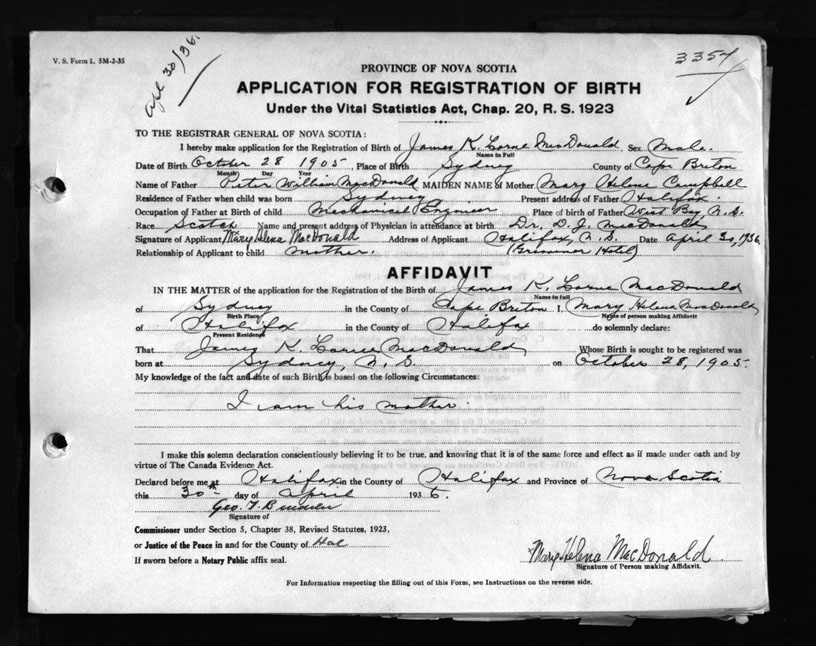 V. S. Form 1, 5M-2-35
apl 30/36.
3357
PROVINCE OF NOVA SCOTIA
APPLICATION FOR REGISTRATION OF BIRTH
Under the Vital Statistics Act, Chap. 20, R. S. 1923
TO THE REGISTRAR GENERAL OF NOVA SCOTIA:
I hereby make application for the Registration of Birth of James K. Lorne MacDonald Sex Male.
Name in Full
Date of Birth October 28 1905 Place of Birth Sydney County of Cape Breton
Month Day Year
Name of Father Peter William MacDonald MAIDEN NAME of Mother Mary Helena Campbell
Residence of Father when child was born Sydney Present address of Father Halifax
Occupation of Father at Birth of child Mechanical Engineer Place of Birth of Father West Bay N. S.
Race Scotch Name and present address of Physician in attendance at birth Dr. D. J. MacDonald
Signature of Applicant Mary Helena MacDonald Address of Applicant Halifax, N. S. Date April 30, 1936
Relationship of Applicant to child mother. Hotel)
AFFIDAVIT
IN THE MATTER of the application for the Registration of the Birth of James K. Lorne MacDonald
Name in full
of Sydney in the County of Cape Breton I, Mary Helena MacDonald
Birth Place Name of person making Affidavit
of Halifax in the County of Halifax do solemnly declare:
Present Residence
That James K. Lorne MacDonald Whose Birth is sought to be registered was
born at Sydney, N. S. on October 28, 1905.
My knowledge of the fact and date of such Birth is based on the following Circumstances:
I am his mother.
I make this solemn declaration conscientiously believing it to be true, and knowing that it is of the same force and effect as if made under oath and by
virtue of The Canada Evidence Act.
Declared before me at Halifax in the County of Halifax and Province of Nova Scotia
this 30 day of April 1936.
Geo. T.
Signature of
Commissioner under Section 5, Chapter 38, Revised Statutes, 1923,
or Justice of the Peace in and for the County of Hal
If sworn before a Notary Public affix seal.
Mary Helena MacDonald
Signature of Person making Affidavit.
For Information respecting the filling out of this Form, see Instructions on the reverse side.